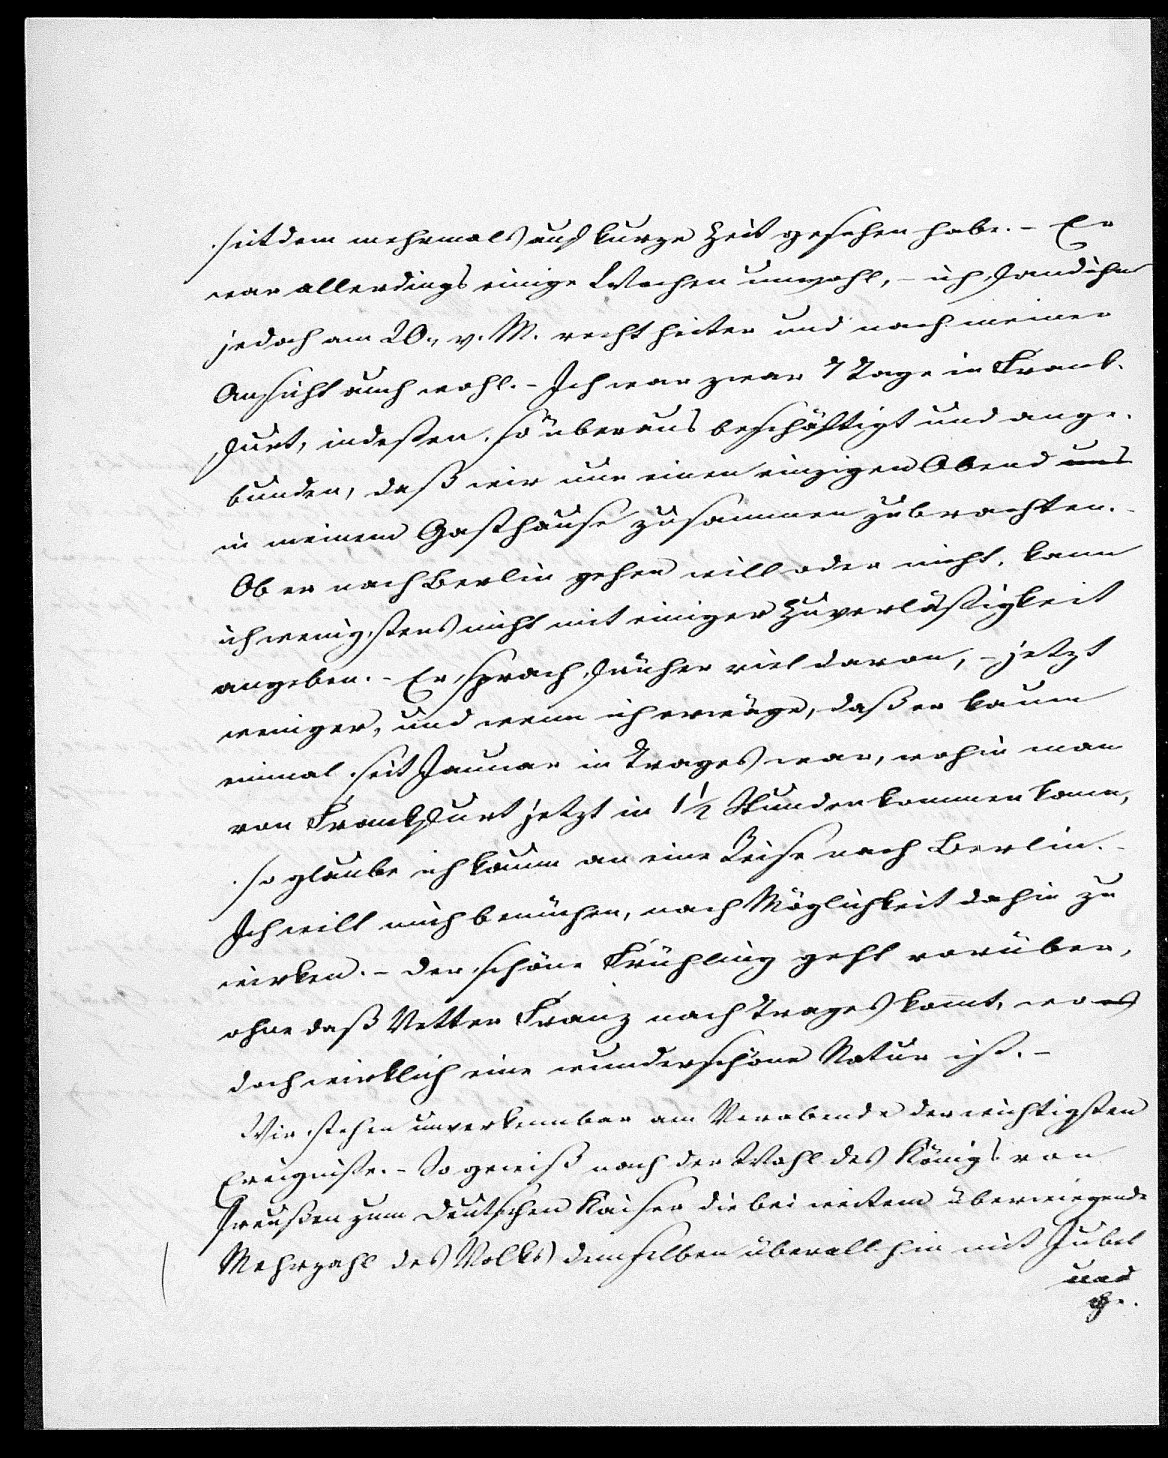 seitdem mehrmals auf kurze Zeit gesehen habe. - Er
war allerdings einige Wochen unwohl, - ich fand ihn
jedoch am 20., v. M. recht heiter und nach meiner
Ansicht auch wohl. - Ich war zwar 7 Tage in Frank-
furt, indeßen so überaus beschäftigt und ange-
bunden, daß wir nur einen einzigen Abend uns
in meinem Gasthause zusammen zubrachten. -
Ob er nach Berlin gehen will oder nicht, kann
ich wenigstens nicht mit einiger Zuverläßigkeit
angeben. - Er sprach früher viel davon, - jetzt
weniger, und wenn ich erwäge, daß er kaum
einmal seit Januar in Trages war, wohin man
von Frankfurt jetzt in 1 1/2 Stunden kommen kann,
so glaube ich kaum an eine Reise nach Berlin. -
Ich will mich bemühen, nach Möglichkeit dahin zu
wirken. - Der schöne Frühling geht vorüber,
ohne daß Vetter Franz nach Trages kommt, wo es
doch wirklich eine wunderschöne Natur ist. -
Wir stehen unverkennbar am Vorabende der wichtigsten
Ereigniße. - So gewiß nach der Wahl des Königs von
Preußen zum deutschen Kaiser die bei weitem überwiegende
Mehrzahl des Volks demselben überall hin mit Jubel
und